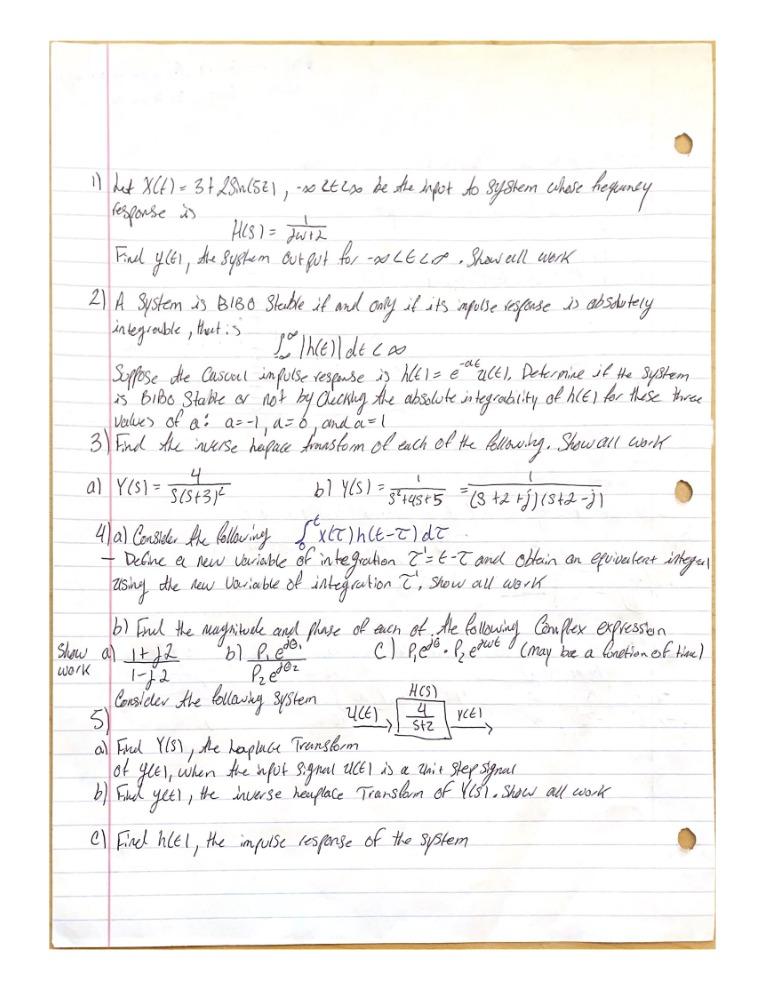 1) Let X(t) = 3 + 2Sin(5t), -∞ < t < ∞ be the input to System whose frequency
response is
H(s) = 1/(jw+2)
Find y(t), the System output for -∞ < t < ∞. Show all work
2) A System is BIBO Stable if and only if its inpulse response is absolutely
integrable, that is
∫_{-∞}^{∞} |h(t)| dt < ∞
Suppose the Casual impulse response is h(t) = e^{-at} u(t). Determine if the system
is BIBO Stable or not by Checking the absolute integrability of h(t) for these three
values of a: a=-1, a=0, and a=1
3) Find the inverse laplace transform of each of the following. Show all work
a) Y(s) = 4/(s(s+3)^2) b) Y(s) = 1/(s^2+4s+5) = 1/((s+2+j)(s+2-j))
4) a) Consider the following ∫_0^t x(τ)h(t-τ)dτ
- Define a new variable of integration τ' = t-τ and obtain an equivalent integral
using the new variable of integration τ', Show all work
b) Find the magnitude and phase of each of the following Complex expression
Show work a) (1+j2)/(1-j2) b) P₁e^{jθ₁}/P₂e^{jθ₂} C) P₁e^{jθ} · P₂e^{jwt} (may be a function of time)
Consider the following system
5) u(t) H(s) 4/(s+2) y(t)
a) Find Y(s), the Laplace Transform
of y(t), when the input signal u(t) is a unit step signal
b) Find y(t), the inverse Leaplace Transform of Y(s). Show all work
C) Find h(t), the impulse response of the system